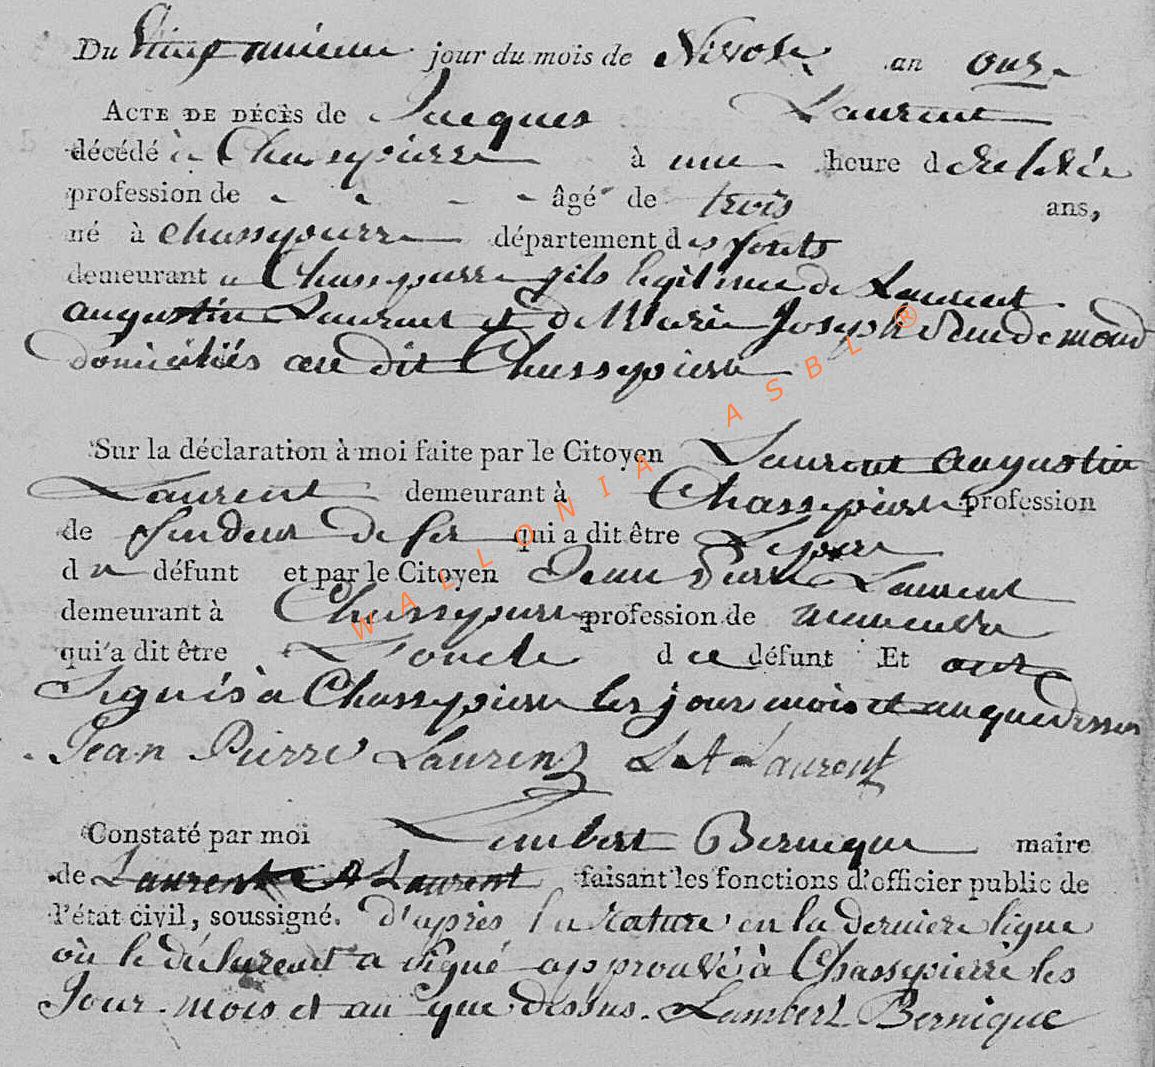 Du Vingt unieme jour du mois de Nivose an onze
ACTE DE DÉCÈS de Jacques Laurent
décédé à Chassepierre à une heure de relevée
profession de - - - - âgé de trois ans,
né à Chassepierre département des forets
demeurant a Chassepierre fils legitime de Laurent
augustin Laurent et de Marie Joseph
domiciliés au dit Chassepierre
Sur la déclaration à moi faite par le Citoyen Laurent augustin
Laurent demeurant à Chassepierre profession
de fendeur de fer qui a dit être Le pere
du défunt et par le Citoyen Jean Pierre Laurent
demeurant à Chassepierre profession de manuvre
qui a dit être L'oncle du défunt Et ont
Signés à Chassepierre les jour mois et an que dessus
Jean Pierre Laurent L A Laurent
Constaté par moi Lambert Bernique maire
de Laurent A Laurent faisant les fonctions d'officier public de
l'état civil, soussigné. d'après la rature en la derniere ligne
où le déclarent a signé approuvé à Chassepierre les
Jour mois et an que dessus. Lambert Bernique
WALLONIA ASBL ®